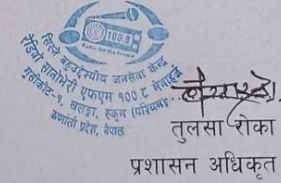 सिस्ने बहुउद्देश्यीय जनसेवा केन्द्र
रेडियो सानीभेरी एफएम १०० ८ मेगाहर्ज
100.8
मुसीकोट-१, खलङ्गा, रुकुम (पश्चिम)
कर्णाली प्रदेश, नेपाल
तुलसा रोका
प्रशासन अधिकृत